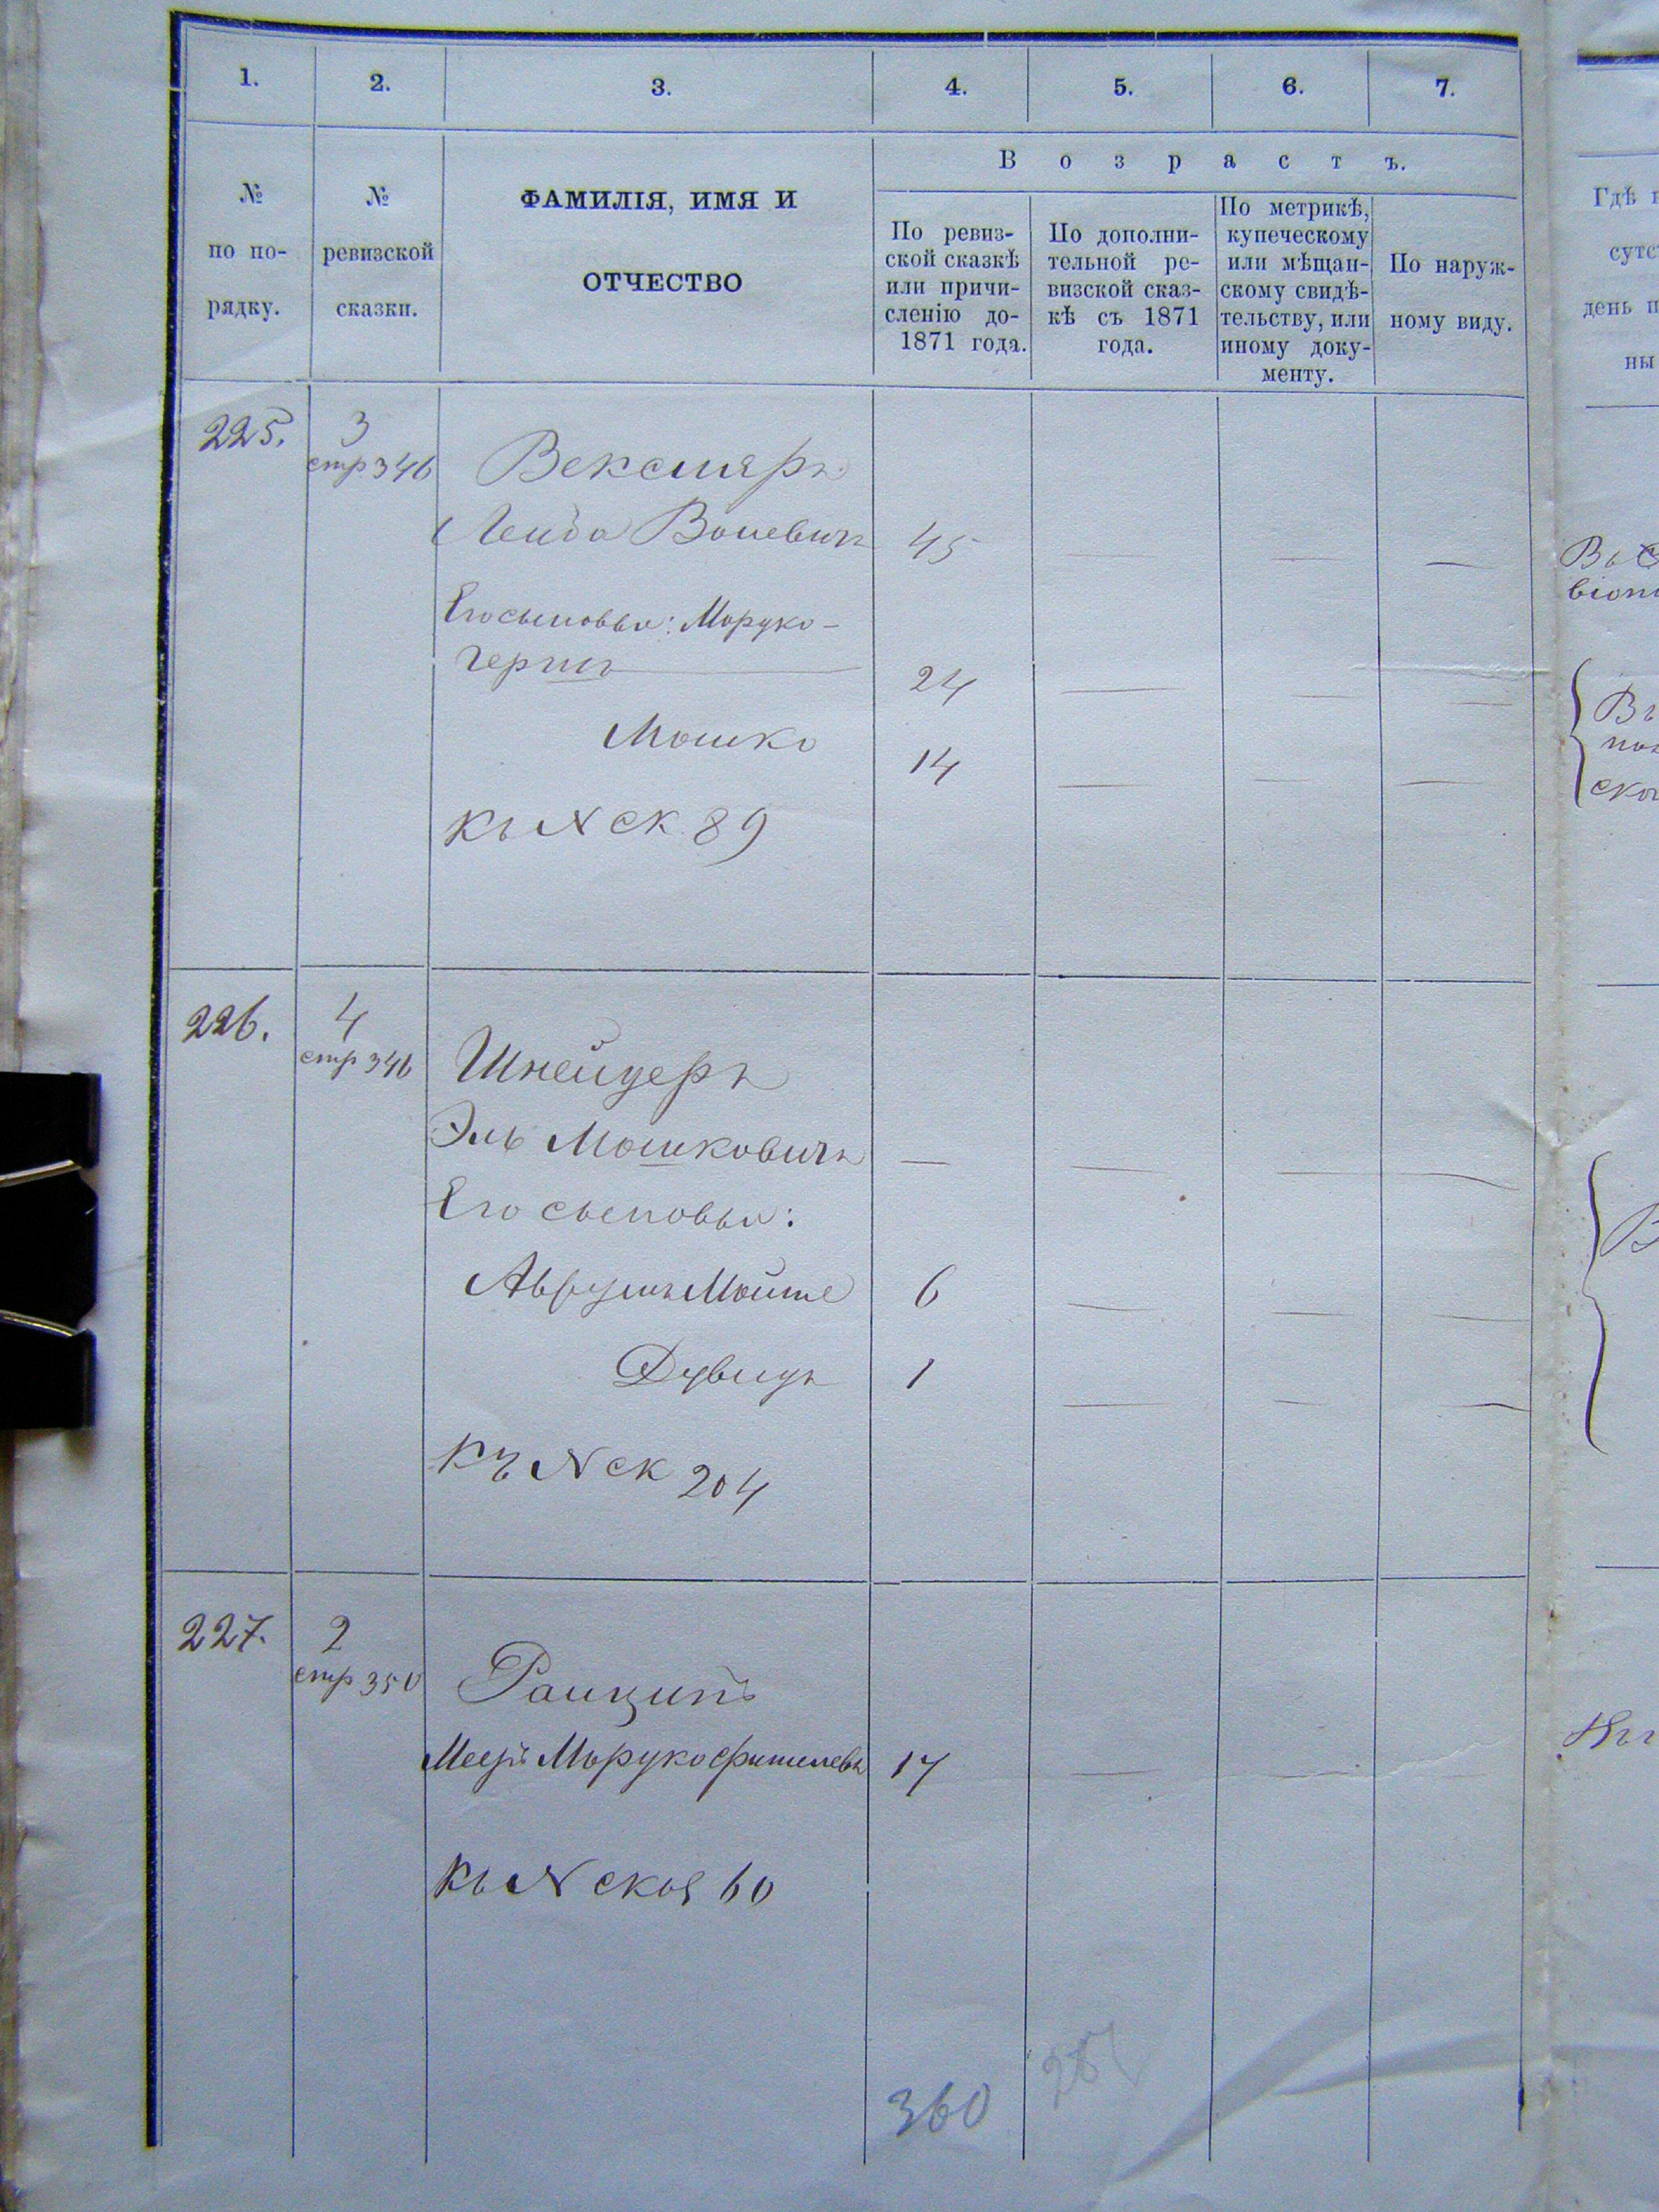 1. 2. 3. 4. 5. 6. 7.
№ по по-
рядку.
№
ревизской
сказки.
ФАМИЛІЯ, ИМЯ И
ОТЧЕСТВО
Возрастъ.
По ревиз-
ской сказкѣ
или причи-
сленію до-
1871 года.
По дополни-
тельной ре-
визской сказ-
кѣ съ 1871
года.
По метрикѣ,
купеческому
или мѣщан-
скому свидѣ-
тельству, или
иному доку-
менту.
По наруж-
ному виду.
225. 3
стр 346
Векслеръ
Лейба Волевичъ 45 — — —
Его сыновья: Мордко-
Гершъ 24 — — —
Мошко 14 — — —
Къ N ск. 89
226. 4
стр 346
Шнейдеръ
Эль Мошковичъ — — — —
Его сыновья:
Аврумъ Мойше 6 — — —
Дувидъ 1 — — —
Къ N ск 204
227. 2
стр 350
17 — — —
Къ N ск 60
360
Гдѣ
день
ны